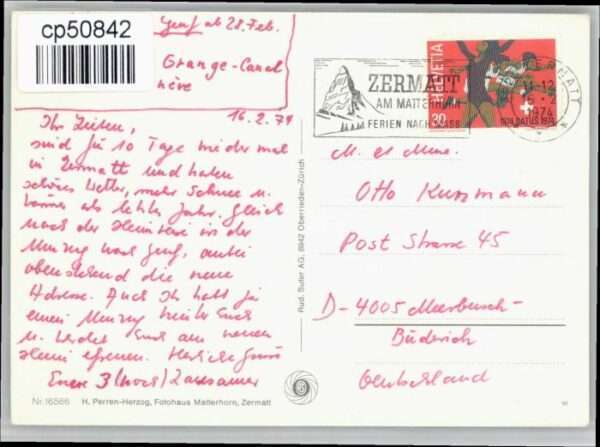 cp50842
Genf ab 28. Feb.
Grange-Canal
nève
16.2.74
Ihr Lieben,
sind für 10 Tage wieder mal
in Zermatt und haben
schönes Wetter, mehr Schnee u.
als letztes Jahr. Gleich
nach der Heimreise ist der
Umzug nach Genf,
obenstehend die neue
Adresse. Auch Ihr habt ja
einen Umzug hinter Euch
u. werdet Euch am neuen
Heim erfreuen. Herzliche Grüsse
Eure 3 (noch)
Nr. 16566 H. Perren-Herzog, Fotohaus Matterhorn, Zermatt
Rud. Suter AG, 8942 Oberrieden-Zürich
ZERMATT
AM MATTERHORN
FERIEN NACH MASS
HELVETIA
30
ZERMATT
11-12
1974
M. et Mme.
Otto Kurzmann
Post Strasse 45
D-4005 Meerbusch-
Büderich
Deutschland